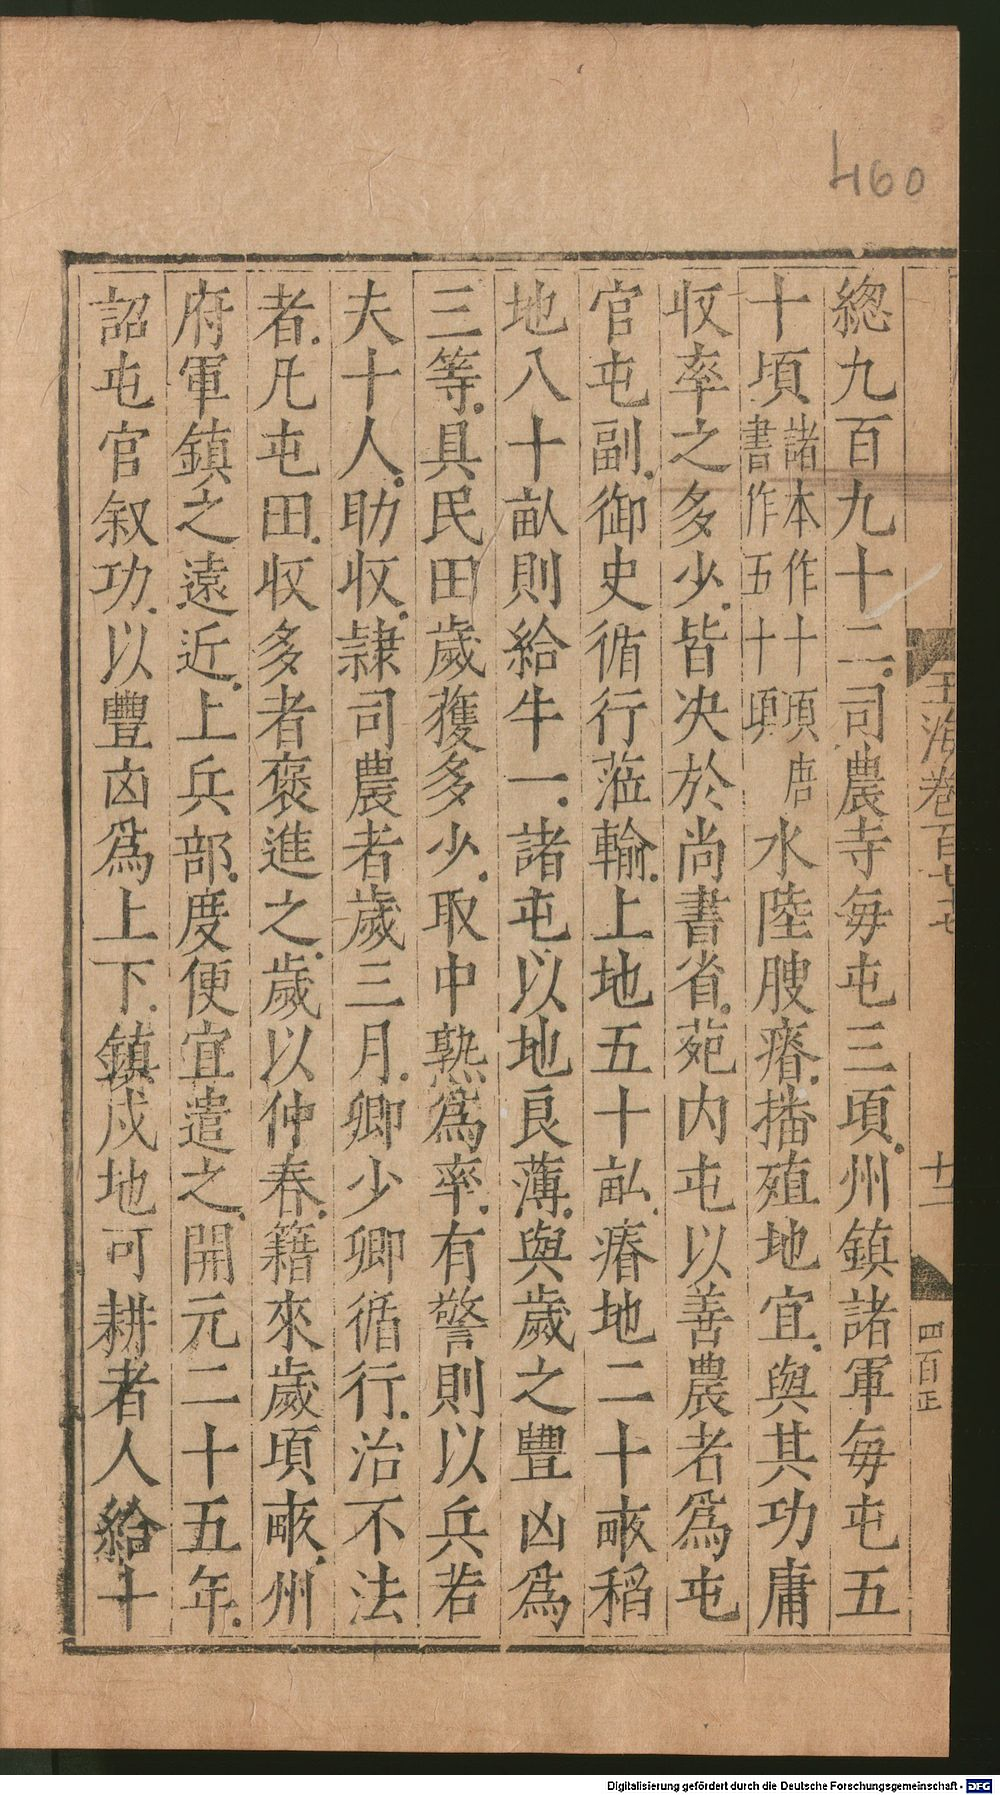 460
玉海卷百七十七
廿一
四百正
總九百九十二司農寺每屯三項州鎮諸軍每屯五
十頃諸本作十項唐書作五十頃水陸腴瘠播殖地宜與其功庸
収率之多少皆决於尚書省苑内屯以善農者爲屯
官屯副御史循行蒞輸上地五十畝瘠地二十畞稻
地八十畝則給牛一諸屯以地良薄與歲之豐凶爲
三等具民田歲獲多少取中熟爲率有警則以兵若
夫十人助収隷司農者歲三月卿少卿循行治不法
者凡屯田収多者褒進之歲以仲春籍來歲頃畞州
府軍鎮之遠近上兵部度便宜遣之開元二十五年
詔屯官叙功以豐凶爲上下鎮戍地可耕者人給十
Digitalisierung gefördert durch die Deutsche Forschungsgemeinschaft - DFG